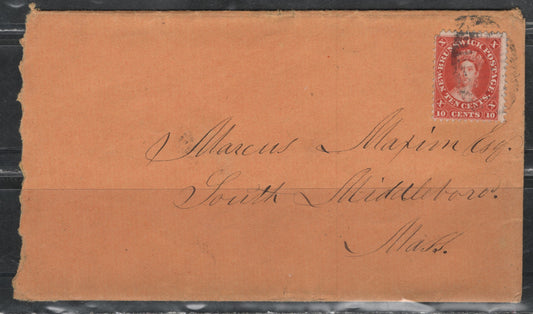 X X
NEW BRUNSWICK POSTAGE
TEN CENTS.
X X
10 CENTS 10
Marcus Maxim Esq.
South Middleboro.
Mass.